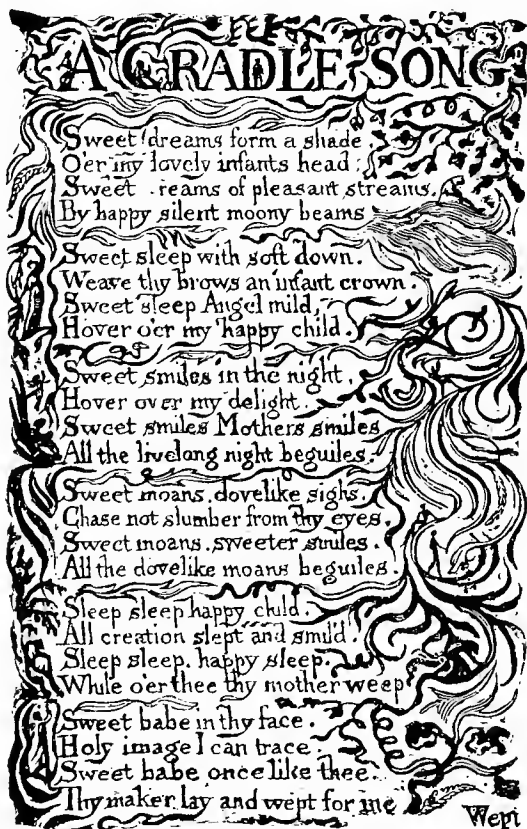 A CRADLE SONG
Sweet dreams form a shade
O'er my lovely infants head
Sweet reams of pleasant streams.
By happy silent moony beams
Sweet sleep with soft down.
Weave thy brows an infant crown.
Sweet sleep Angel mild,
Hover o'er my happy child.
Sweet smiles in the night.
Hover over my delight.
Sweet smiles Mothers smiles
All the livelong night beguiles.
Sweet moans, dovelike sighs.
Chase not slumber from thy eyes.
Sweet moans. sweeter smiles.
All the dovelike moans beguiles.
Sleep sleep happy child.
All creation slept and smil'd.
Sleep sleep. happy sleep.
While o'er thee thy mother weep
Sweet babe in thy face.
Holy image I can trace.
Sweet babe once like thee.
Thy maker lay and wept for me
Wept